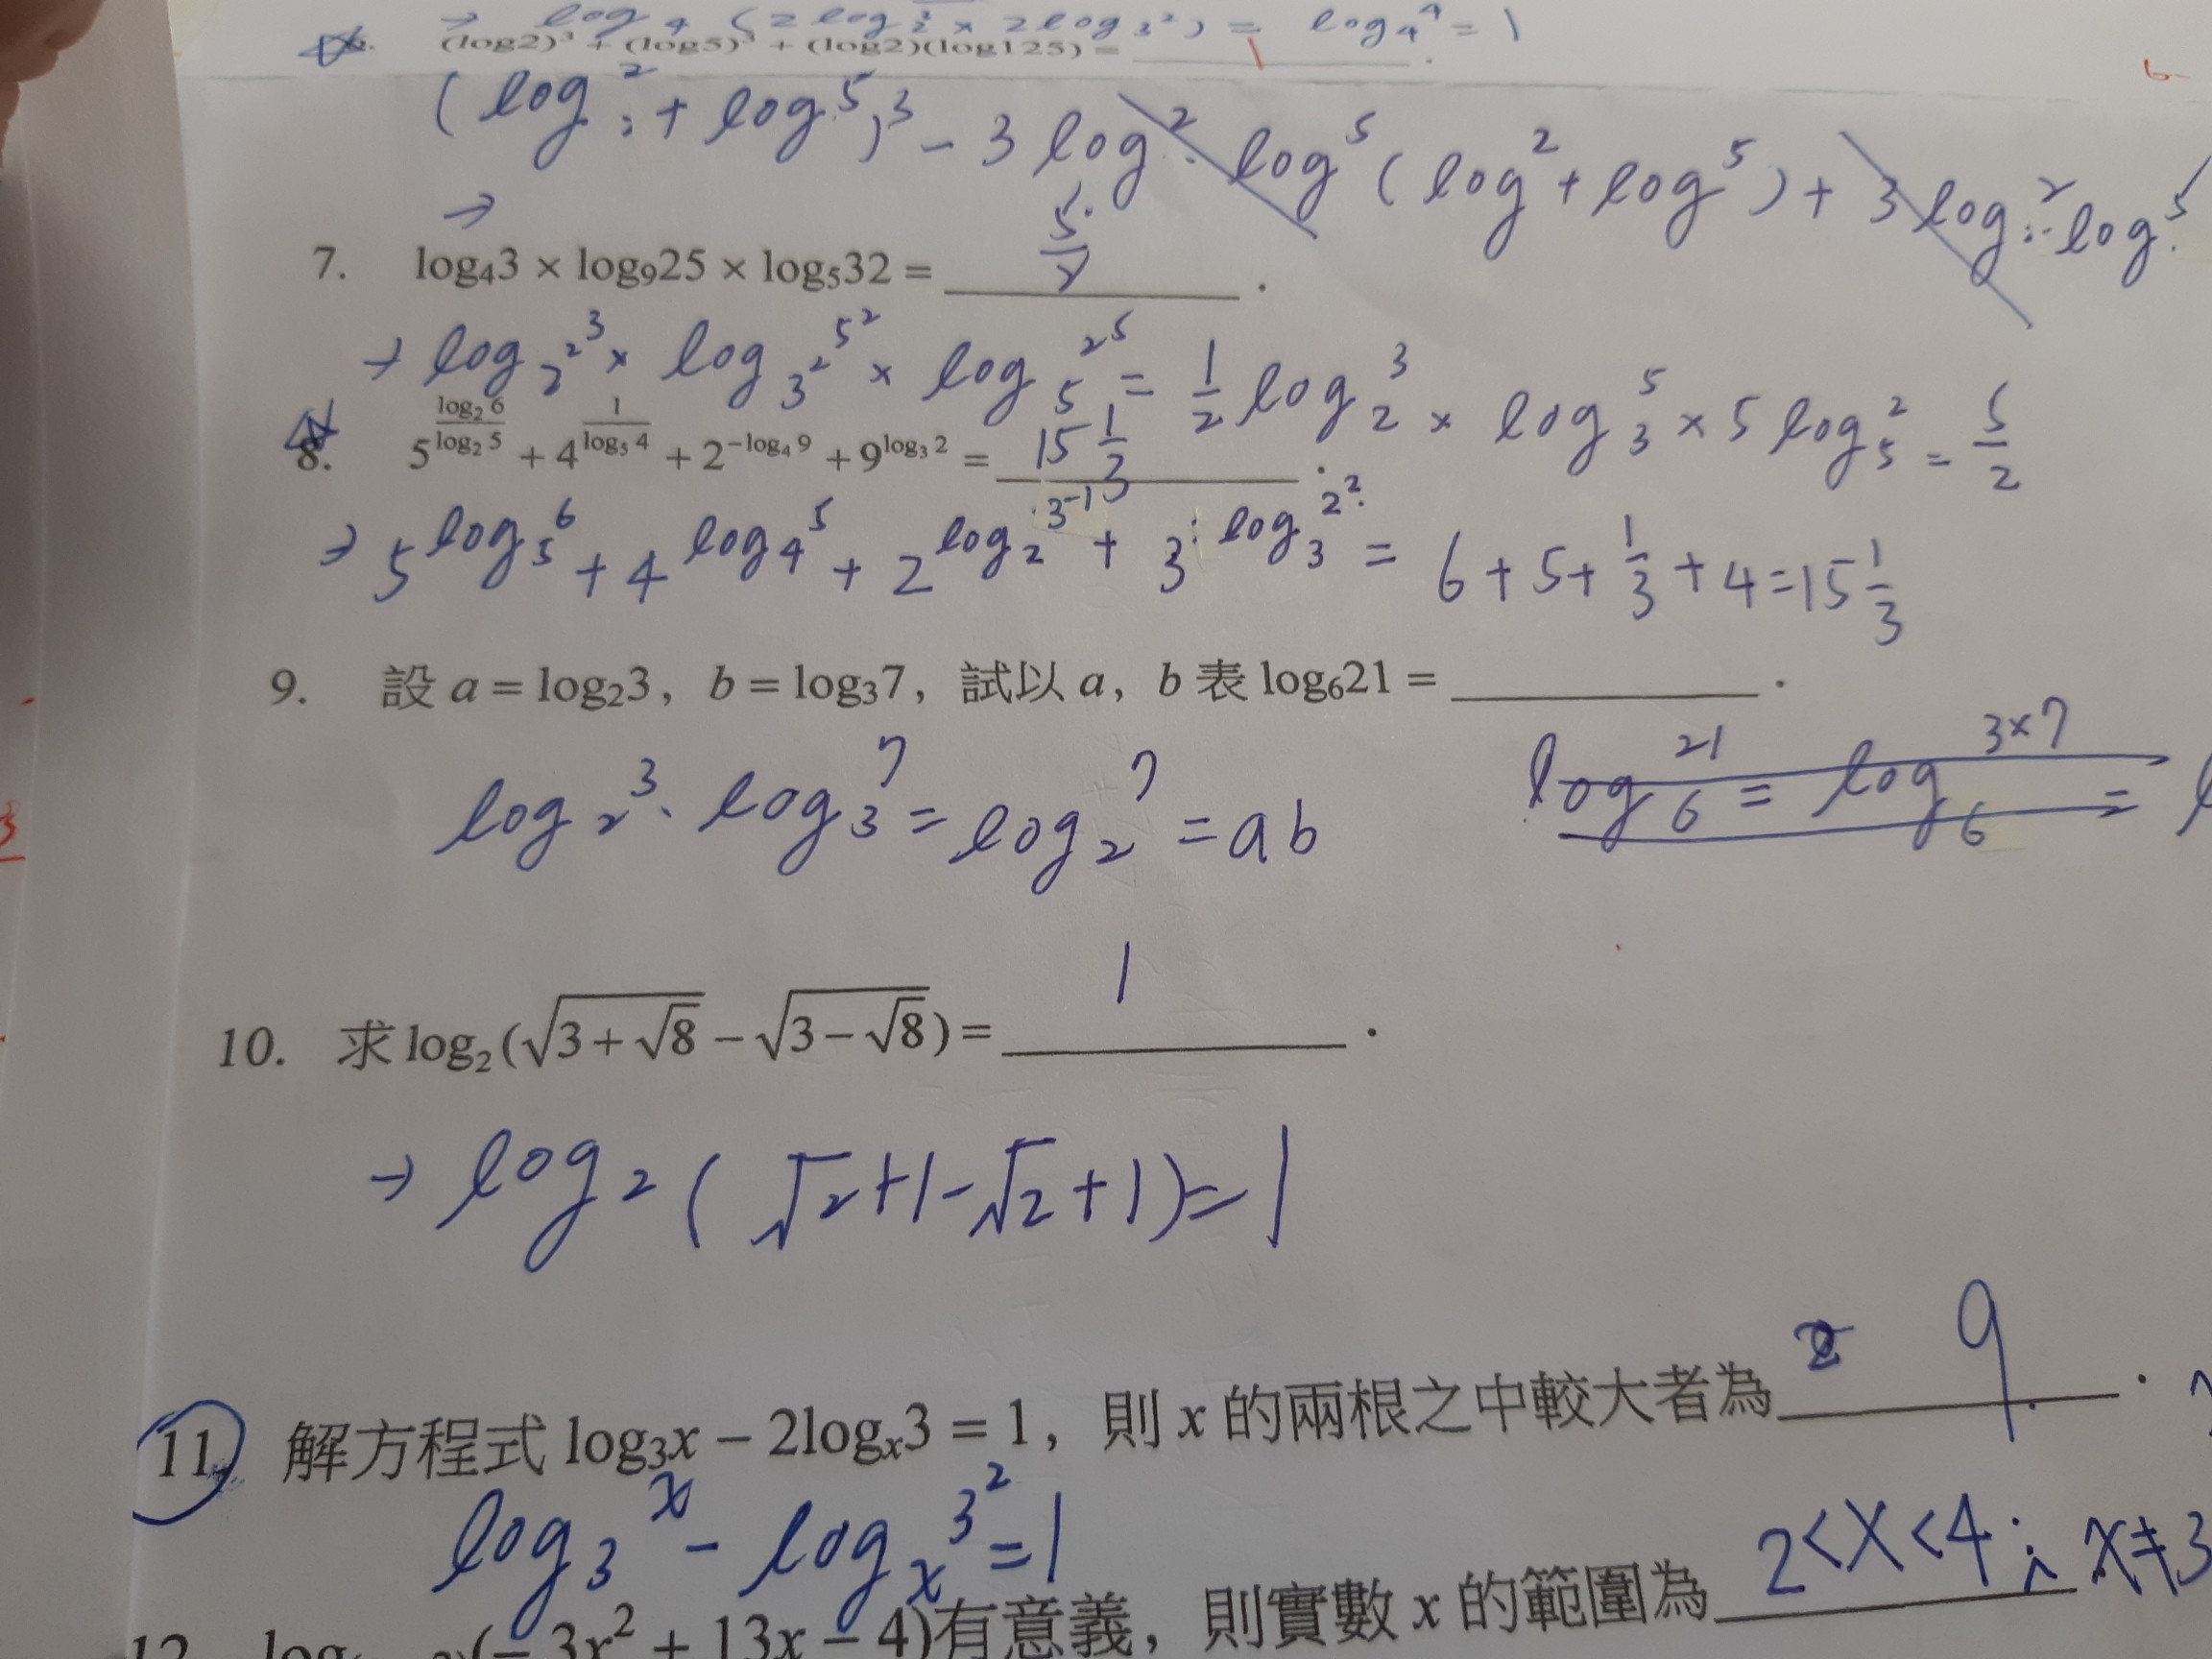 → log₄(2log₂ × 2log₃²) = log₄⁴ = 1
(log2)³ + (log5)³ + (log2)(log125) = 1 .
(log² + log⁵)³ − 3log²·log⁵(log² + log⁵) + 3log²·log⁵
→
7. log₄3 × log₉25 × log₅32 = 5/2 .
→ log₂²³ × log₃²5² × log₅2⁵ = 1/2 log₂³ × log₃⁵ × 5log₅² = 5/2
8. 5^(log₂6/log₂5) + 4^(1/log₅4) + 2^(−log₄9) + 9^(log₃2) = 15 1/3 .
→ 5^(log₅6) + 4^(log₄5) + 2^(log₂3⁻¹) + 3^(log₃2²) = 6+5+1/3+4=15 1/3
9. 設 a = log₂3, b = log₃7, 試以 a, b 表 log₆21 = .
log₂³·log₃⁷ = log₂⁷ = ab
log₆21 = log₆3×7 =
10. 求 log₂(√(3+√8) − √(3−√8)) = 1 .
→ log₂(√2+1−√2+1)=1
11. 解方程式 log₃x − 2logₓ3 = 1, 則 x 的兩根之中較大者為 9 .
log₃x − logₓ3² = 1
12. (−3x² + 13x − 4)有意義, 則實數 x 的範圍為 2<x<4; x≠3